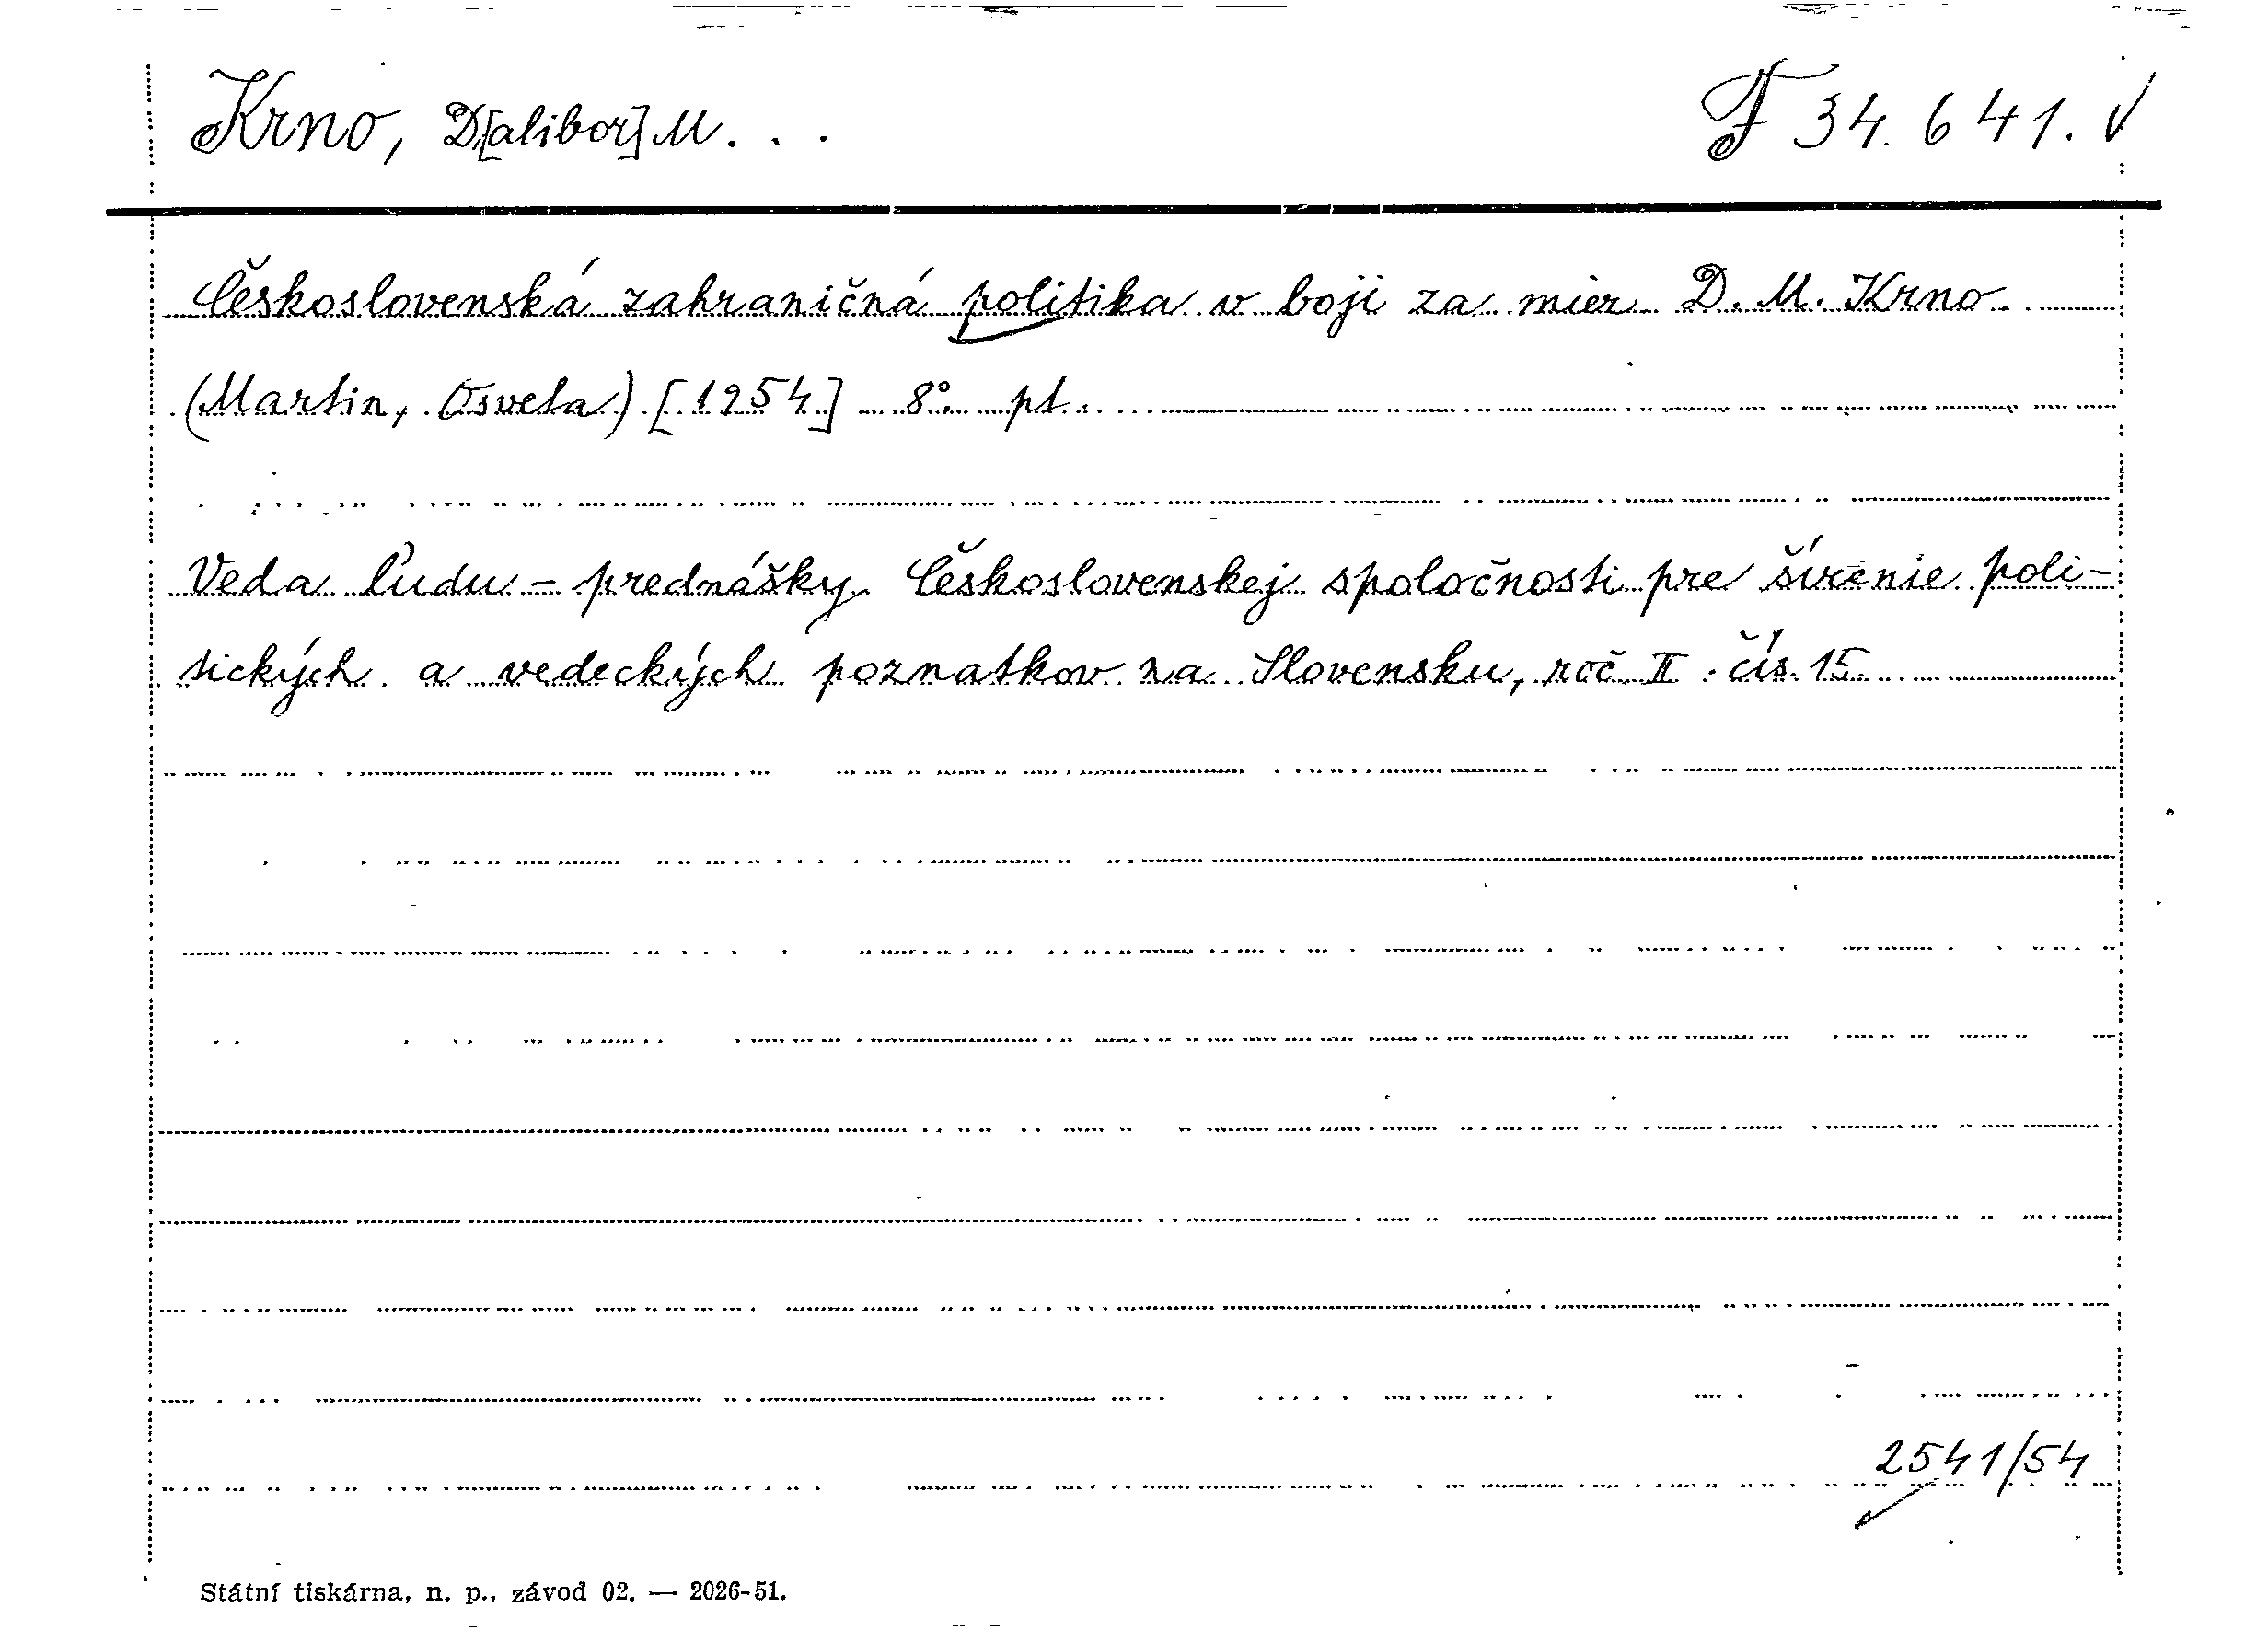 Krno, D[alibor] M...
F 34.641.
Československá zahraničná politika v boji za mier D. M. Krno.
(Martin, Osveta) [1954] 8° pt.
Veda ľudu - prednášky Československej spoločnosti pre šírenie poli-
tických a vedeckých poznatkov na Slovensku, roč. II. čís. 15.
2541/54
Státní tiskárna, n. p., závod 02. — 2026-51.